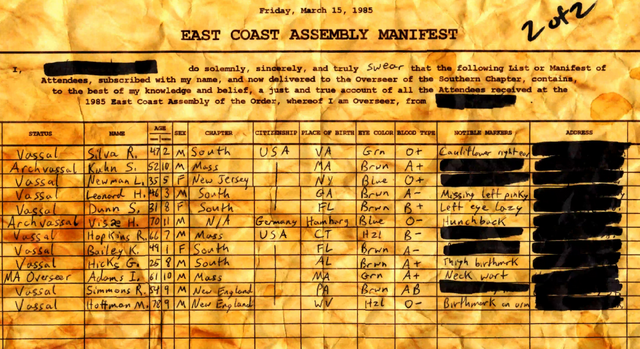 Friday, March 15, 1985
2 of 2
EAST COAST ASSEMBLY MANIFEST
I, do solemnly, sincerely, and truly swear that the following List or Manifest of
Attendees, subscribed with my name, and now delivered to the Overseer of the Southern Chapter, contains,
to the best of my knowledge and belief, a just and true account of all the Attendees received at the
1985 East Coast Assembly of the Order, whereof I am Overseer, from
STATUS NAME AGE SEX CHAPTER CITIZENSHIP PLACE OF BIRTH EYE COLOR BLOOD TYPE NOTIBLE MARKERS ADDRESS
Vassal Silva R. 47 2 M South USA VA Grn O+ Cauliflower right ear
Archvassal Kuhn S. 52 10 M Mass MA Brwn A+
Vassal Newman L. 35 5 F New Jersey NY Blue O+
Vassal Leonard H. 46 3 M South GA Brwn A- Missing left pinky
Vassal Dunn S. 31 8 F South FL Brwn B+ Left eye lazy
Archvassal H. 70 11 M N/A Germany Hamburg Blue O- Hunchback
Vassal Hopkins R. 66 7 M Mass USA CT Hzl B-
Vassal Bailey K. 49 1 F South FL Brwn A-
Vassal Hicks G. 25 8 M South AL Brwn A+ Thigh birthmark
MA Overseer Adams I. 61 10 M Mass MA Grn A+ Neck wart
Vassal Simmons R. 54 9 M New England PA Brwn AB
Vassal Hoffman M. 78 9 M New England WV Hzl O- Birthmark on arm